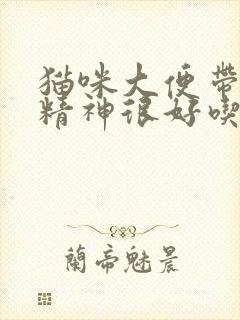 猫咪大便带
精神很好喫
兰帝魅晨